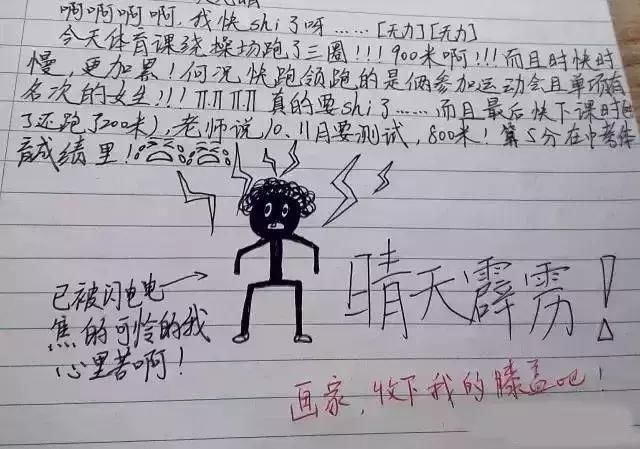 啊啊啊啊啊,我快shi了呀……[无力][无力]
今天体育课绕操场跑了三圈!!!900米啊!!!而且时快时
慢,更加累!何况,快跑领跑的是俩参加运动会且单项有
名次的女生!!!TTTTTTTT真的要shi了……而且最后快下课时
了还跑了200米),老师说10、11月要测试,800米!算5分在中考体
育成绩里!
已被闪电电
焦的可怜的我
心里苦啊!
晴天霹雳!
画家,收下我的膝盖吧!